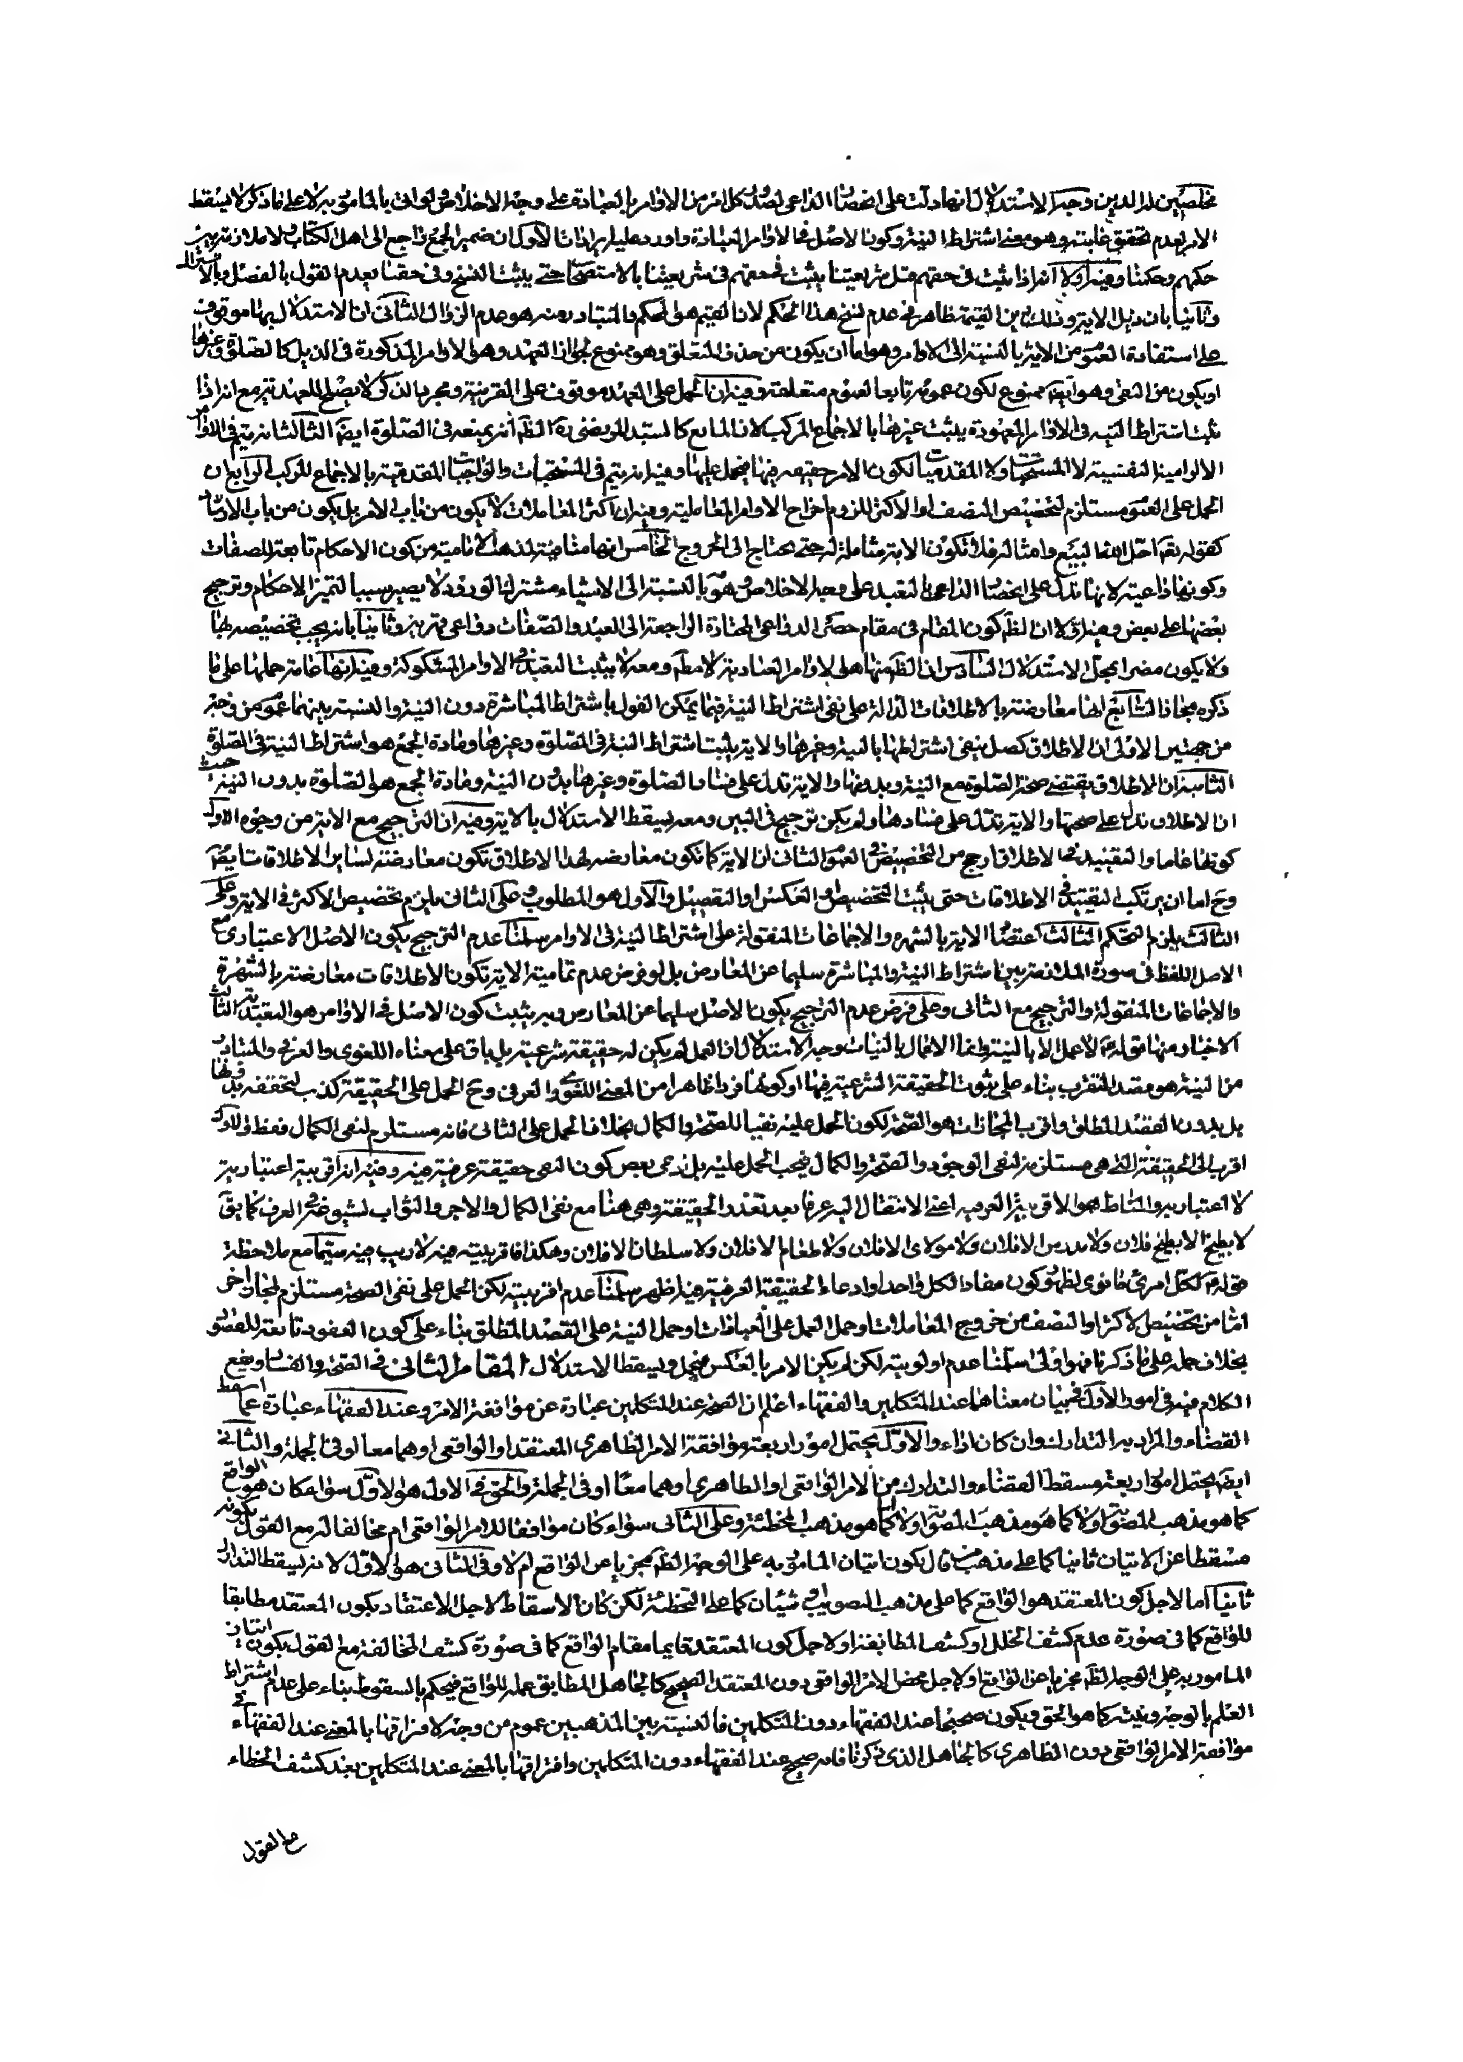 مخلصين له الدين وجه الاستدلال انها دلت على انحصار الداعى لصدور كل امر من الاوامر بالعبادة على وجه الاخلاص ولو اتى بالمامور به لا على ما ذكر لا يسقط
الامر لعدم تحقق غايته وهو معنى اشتراط النية وكون الاصل فى الاوامر العبادة واورد عليه بايرادات الاول ان ضمير الجمع راجع الى اهل الكتاب ولا ملازمة بين
حكمهم وحكمنا وفيه اولا انه اذا ثبت فى حقهم قبل شريعتنا يثبت فى حقهم فى شريعتنا بالاستصحاب حتى يثبت النسخ وفى حقنا بعدم القول بالفصل وبالاشتراك
وثانيا بان ذيل الاية وذلك دين القيمة ظاهر فى عدم نسخ هذا الحكم لان القيم هو المحكم والمتبادر منه هو عدم الزوال الثانى ان الاستدلال بها موقوف
على استفادة العموم من الاية بالنسبة الى الاوامر وهو اما ان يكون من حذف المتعلق وهو ممنوع لجواز العهد وهو الاوامر المذكورة فى الذيل كالصلوة وغيرها
او يكون من النفى وهو ايضا ممنوع لكون عمومه تابعا لعموم متعلقه وفيه ان الحمل على العهد موقوف على القرينة ومجرد الذكر لا يصلح للعهدية مع انه اذا
ثبت اشتراط النية فى الاوامر المعهودة يثبت غيرها بالاجماع المركب لان المانع كالسيد المرتضى ره الظ انه يمنعه فى الصلوة ايضا الثالث انه يتم فى الاوامر
الالزامية النفسية لا المستحبات ولا المقدميات لكون الامر حقيقة فيها فيحمل عليها وفيه انه يتم فى المستحبات والواجبات المقدمية بالاجماع المركب الرابع ان
الحمل على العموم مستلزم لتخصيص النصف او الاكثر للزوم اخراج الاوامر المعاملية وفيه ان اكثر المعاملات لا يكون من باب الامر بل يكون من باب الارشاد
كقوله تعه احل الله البيع وامثاله فلا تكون الاية شاملة له حتى يحتاج الى الخروج الخامس انها منافية لمذهب الامامية من كون الاحكام تابعة للصفات
وكونها داعية لانها تدل على انحصار الداعى التعبد على وجه الاخلاص وهو بالنسبة الى الاشياء مشترك الورود لا يصير سببا لتميز الاحكام وترجيح
بعضها على بعض وفيه اولا ان الظ كون المقام فى مقام حصر الدواعى المختارة الراجعة الى العبد والصفات دواعى تقريره وثانيا بانه يجب تخصيصه بها
ولا يكون مضرا بمحل الاستدلال السادس ان الظ منها هو الاوامر العبادية لا مط ومعه لا يثبت التعبد فى الاوامر المشكوكة وفيه انها عامة حملها على ما
ذكره مجاز السابع انها معارضة بالاطلاقات الدالة على نفى اشتراط النية فيما يمكن القول باشتراط المباشرة دون النية والنسبة بينهما عموم من وجه
من جهتين الاولى ان الاطلاق كصل ينفى اشتراطها بالنية وغيرها والاية يثبت اشتراط النية فى الصلوة وغيرها ومادة الجمع هو اشتراط النية فى الصلوة
الثانية ان الاطلاق يقتضى صحة الصلوة مع النية وبدونها والاية تدل على فساد الصلوة وغيرها بدون النية ومادة الجمع هو الصلوة بدون النية حيث
ان الاطلاق تدل على صحتها والاية تدل على فسادها ولم يكن ترجيح فى البين ومعه يسقط الاستدلال بالاية وفيه ان الترجيح مع الاية من وجوه الاول
كونها عاما والتقييد فى الاطلاق ارجح من التخصيص فى العموم الثانى ان الاية كما تكون معارضه لهذا الاطلاق تكون معارضة لساير الاطلاقات ايضا
وح اما ان يرتكب التقييد فى الاطلاقات حتى يثبت التخصيص او العكس او التفصيل والاول هو المطلوب وعلى الثانى يلزم تخصيص الاكثر فى الاية وعلى
الثالث يلزم التحكم الثالث اعتضاد الاية بالشهرة والاجماعات المنقولة على اشتراط النية فى الاوامر سلمنا عدم الترجيح يكون الاصل الاعتبارى مع
الاصل اللفظى فى صورة الملازمة بين اشتراط النية والمباشرة سليما عن المعارض بل لو فرض عدم تمامية الاية تكون الاطلاقات معارضة بالشهرة
والاجماعات المنقولة والترجيح مع الثانى وعلى فرض عدم الترجيح يكون الاصل سليما عن المعارض وبه يثبت كون الاصل فى الاوامر هو التعبدية الثالث
الاخبار منها قوله ع لا عمل الا بالنية وانما الاعمال بالنيات وجه الاستدلال ان العمل لم يكن له حقيقة شرعية بل باق على معناه اللغوى والعرفى والمتبادر
من النية هو قصد التقرب بناء على ثبوت الحقيقة الشرعية فيها او كونها فردا ظاهرا من المعنى اللغوى والعرفى وح الحمل على الحقيقة كذب لتحققه بدونها
بل بدون القصد المطلق واقرب المجازات هو الصحة لكون الحمل عليه نفيا للصحة والكمال بخلاف الحمل على الثانى فانه مستلزم لنفى الكمال فقط والاول
اقرب الى الحقيقة التى هى مستلزمة لنفى الوجود والصحة والكمال فيجب الحمل عليه بل ادعى بعض كون النفى حقيقة عرفية فيه وفيه انه اقربية اعتبارية
لا اعتبار به والمناط هو الاقربية العرفية اعنى الانتقال اليه عرفا بعد تعذر الحقيقة وهى هنا مع نفى الكمال والاجر والثواب لشيوعه فى العرف كما يق
لا بطيخ الا بطيخ فلان ولا مدرس الا فلان ولا مولاى الا فلان ولا طعام الا فلان ولا سلطان الا فلان وهكذا فاقربيته فيه لا ريب فيه سيما مع ملاحظة
قوله ع لكل امرئ ما نوى لظهور كون مفاد الكل واحد او ادعاء الحقيقة العرفية فيه اظهر سلمنا عدم اقربيته لكن الحمل على نفى الصحة مستلزم لمجاز اخر
اما من تخصيص الاكثر او النصف من خروج المعاملات او حمل العمل على العبادات او حمل النية على القصد المطلق بناء على كون العقود تابعة للقصود
بخلاف حمله على ما ذكرنا فهو اولى سلمنا عدم اولويته لكن لم يكن الامر بالعكس فيجمل ويسقط الاستدلال المقام الثانى فى الصحة والفساد ويقع
الكلام فيه فى امور الاول فى بيان معناها عند المتكلمين والفقهاء اعلم ان الصحة عند المتكلمين عبارة عن موافقة الامر وعند الفقهاء عبارة عما اسقط
القضاء والمراد به التدارك وان كان اداء والاول يحتمل امورا اربعة موافقة الامر الظاهرى المعتقد او الواقعى او هما معا او فى الجملة والثانى
ايضا يحتمل امورا اربعة مسقط القضاء والتدارك من الامر الواقعى او الظاهرى او هما معا او فى الجملة والحق فى الاول هو الاول سواء كان هو الواقع
كما هو مذهب المصوبة او لا كما هو مذهب المخطئة وعلى الثانى سواء كان موافقا للامر الواقعى ام مخالفا له مع القول بكونه
مسقطا عن الاتيان ثانيا كما على مذهب من قال بكون اتيان المامور به على الوجه الظ مجزيا عن الواقع ام لا وفى الثانى هو الاول لانه ليسقط التدارك
ثانيا اما لاجل كون المعتقد هو الواقع كما على مذهب التصويب او شيئان كما على التخطئة لكن كان الاسقاط لاجل الاعتقاد بكون المعتقد مطابقا
للواقع كما فى صورة عدم كشف الخلل او كشف المطابقة او لاجل كون المعتقد قايما مقام الواقع كما فى صورة كشف المخالفة مع القول بكون اتيان
المامور به على الوجه الظ مجزيا عن الواقع او لاجل محض الامر الواقعى دون المعتقد الصحيح كالجاهل المطابق عمله للواقع فيحكم بالسقوط بناء على عدم اشتراط
العلم بالوجه ونيته كما هو الحق ويكون صحيحا عند الفقهاء دون المتكلمين فالنسبة بين المذهبين عموم من وجه لافتراقها بالمعنى عند الفقهاء فى
موافقة الامر الواقعى دون الظاهرى كالجاهل الذى ذكرنا فانه صحيح عند الفقهاء دون المتكلمين وافتراقها بالمعنى عند المتكلمين بعد كشف الخطاء
مع القول